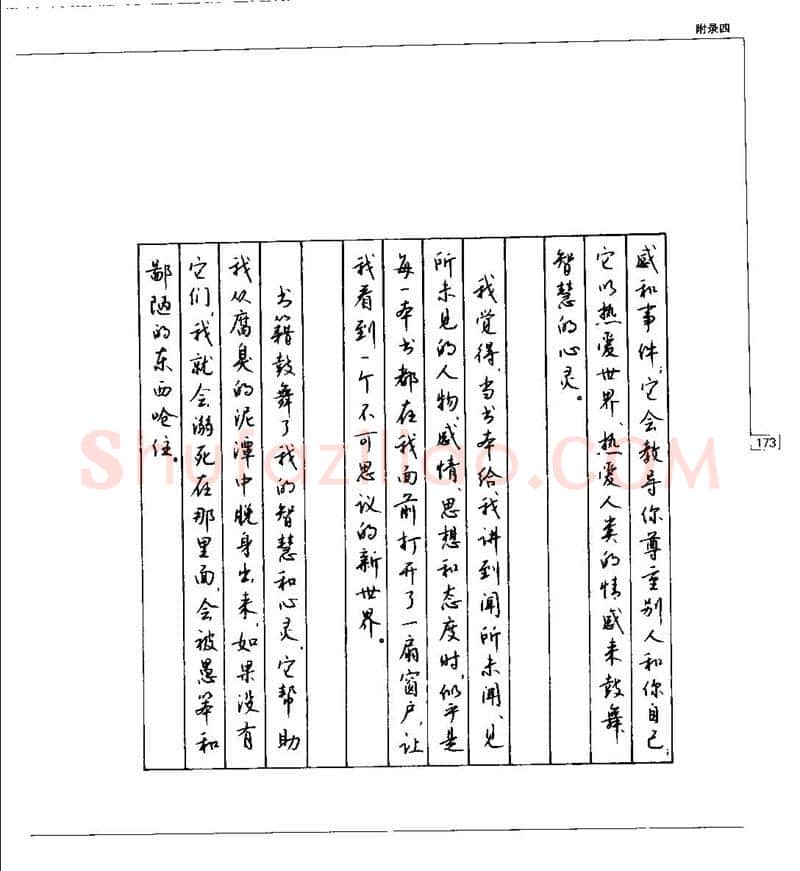 附录四
感和事件,它会教导你尊重别人和你自己,
它以热爱世界、热爱人类的情感来鼓舞
智慧的心灵。
我觉得,当书本给我讲到闻所未闻,见
所未见的人物、感情、思想和态度时,似乎是
每一本书都在我面前打开了一扇窗户,让
我看到一个不可思议的新世界。
书籍鼓舞了我的智慧和心灵,它帮助
我从腐臭的泥潭中脱身出来,如果没有
它们,我就会溺死在那里面,会被愚笨和
鄙陋的东西呛住。
173
Shufaziliao.COM